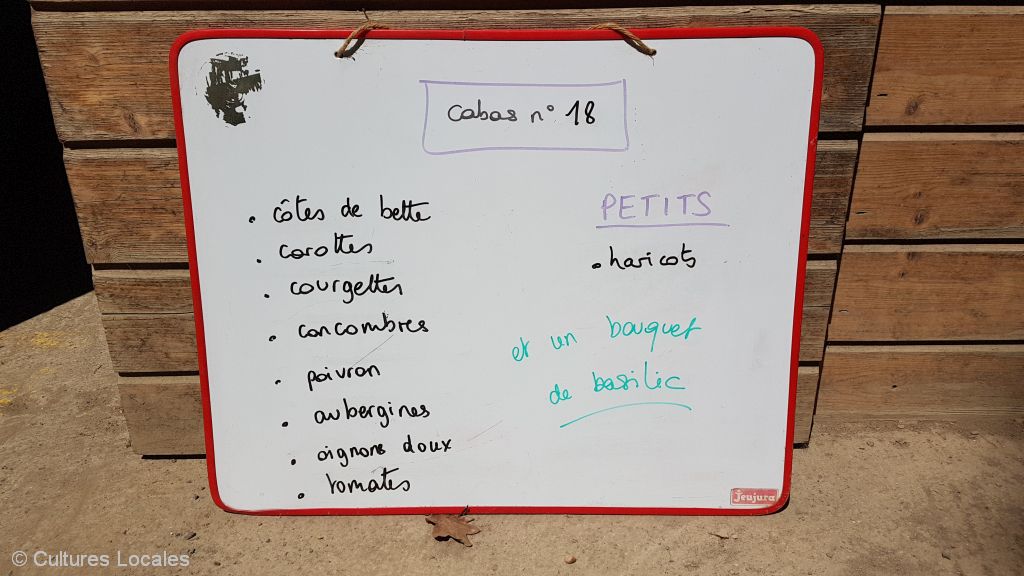 cabas n° 18
• côtes de bette
• carottes
• courgettes
• concombres
• poivron
• aubergines
• oignons doux
• tomates
PETITS
• haricots
et un bouquet
de basilic
Jeujura
© Cultures Locales